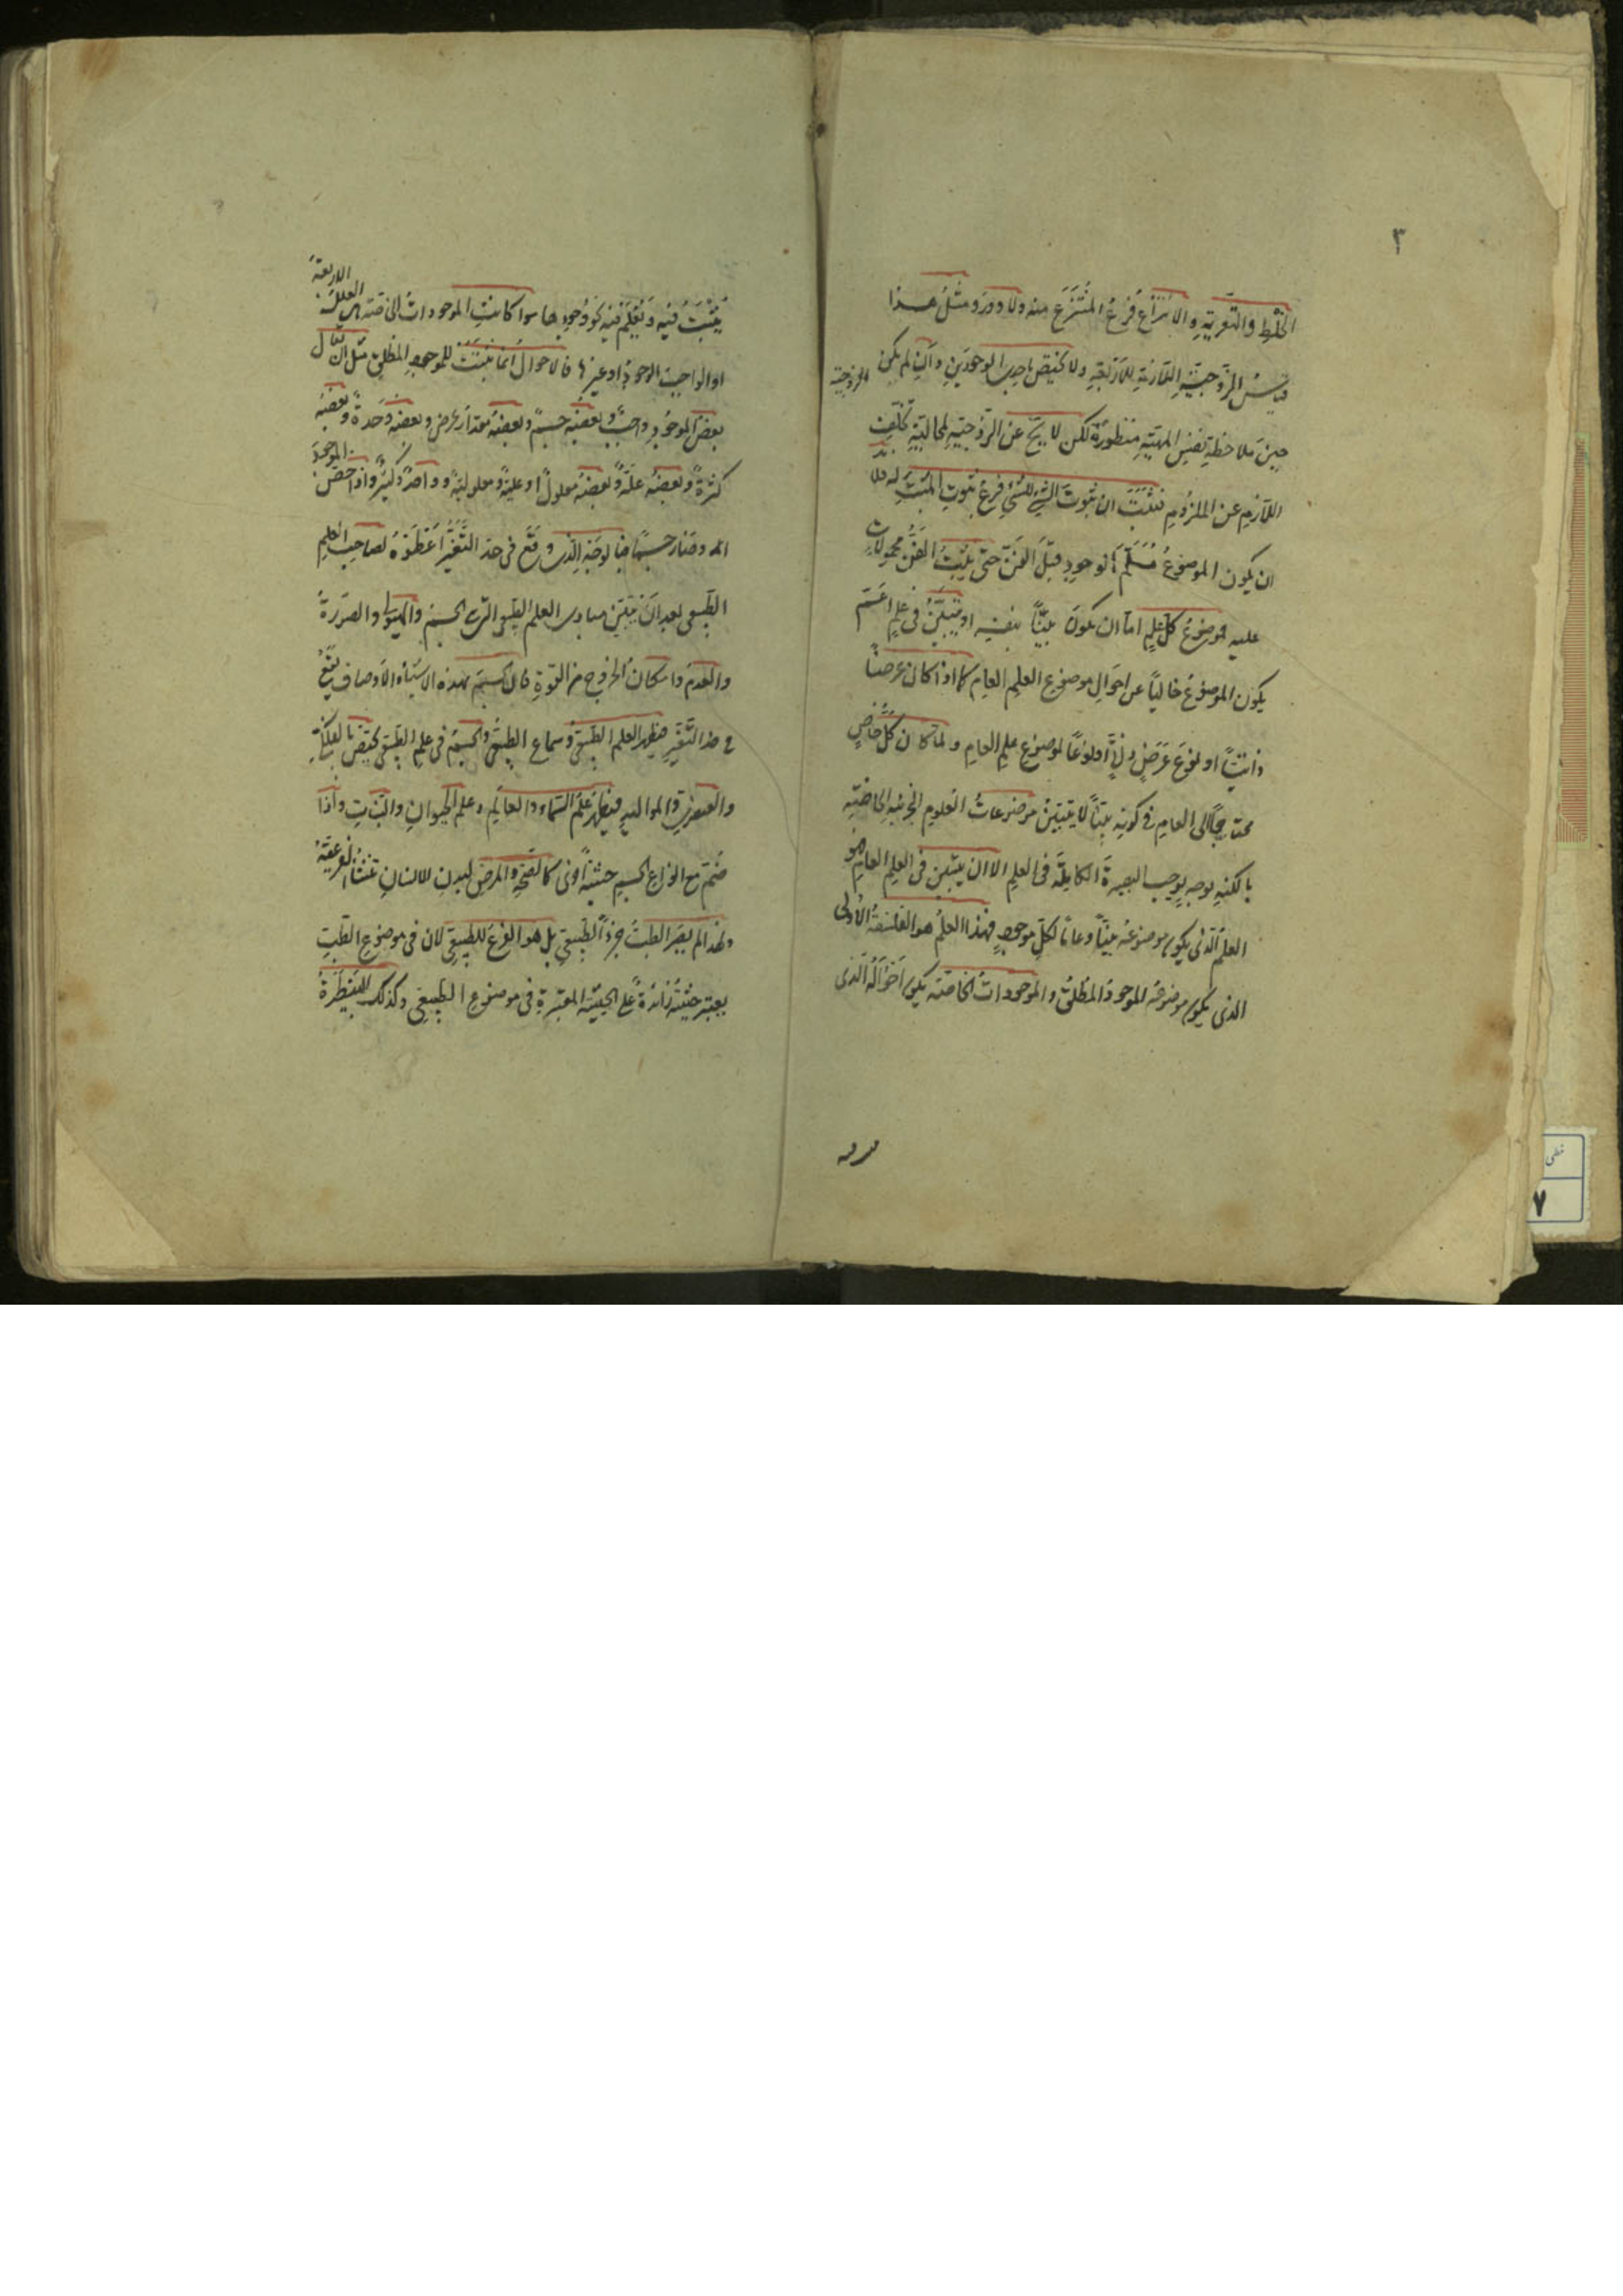 ٣
الخلط والتعرية والانتزاع فرع المنتزع منه ولا دور ومثل هذا
قياس الزوجية اللازمة للاربعة ولا تختص باحد الوجودين وان لم يكن الزوجية
حين ملاحظة نفس المهية منظورة لكن لا عن الزوجية تخلف
اللازم عن الملزوم فثبت ان ثبوت الشئ للشئ فرع ثبوت المثبت له فلا بد
ان يكون الموضوع مسلم الوجود قبل الفن حتى يثبت الفن محمولات
عليه فموضوع كل علم اما ان يكون بينا بنفسه او يتبين في علم اعم
يكون الموضوع خاليا عن احوال موضوع العلم العام كما اذا كان عرضا
ذاتيا او نوع عرض ذاتي او نوعا لموضوع علم العام ولما كان كل خاص
محتاجا الى العام في كونه بينا لا يتبين موضوعات العلوم الجزئية الخاصة
بالكنه بوجه يوجب البصيرة الكاملة في العلم الا ان يتبين في العلم العام هو
العلم الذي يكون موضوعه بينا وعاما لكل موجود فهذا العلم هو الفلسفة الاولى
الذي يكون موضوعه الموجود المطلق والموجودات الخاصة يكون احواله الذي
يثبت فيه ويعلم فيه نحو وجودها سوا كانت الموجودات الخاصة هي العلل الاربعة
او الواجب الوجود او غيرها فالاحوال انما يثبت للموجود المطلق مثل ان يقال
بعض الموجود واجب وبعضه جسم وبعضه مقدار عرض وبعضه وحدة وبعضه
كثرة وبعضه علة وبعضه معلول او علية ومعلولية وواحد وكثير واذا خصص الموجود
وصار جسما بالوجه الذي وقع في حد التغير اعطوه لصاحب العلم
الطبيعي بعد ان يتبين مبادي العلم الطبيعي التي الجسم والهيولى والصورة
والعدم وامكان الخروج من القوة فان الجسم بهذه الاشياء الاوصاف يقع
في حد التغير فيظهر العلم الطبيعي وسماع الطبيعي والجسم في علم الطبيعي يختص بالفلكية
والعنصرية والمواليد فيظهر علم السماء والعالم وعلم الحيوان والنبات واذا
ضم مع انواع الجسم حيثية اخرى كالصحة والمرض لبدن الانسان تنشأ الفرعية
ولهذا لم يصر الطب جزءا لطبيعي بل هو الفرع للطبيعي لان في موضوع الطب
يعتبر حيثية زائدة على الحيثية المعتبرة في موضوع الطبيعي وكذلك البيطرة